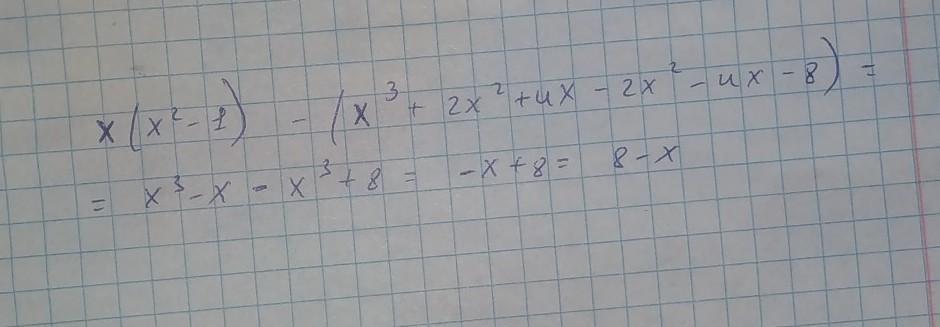 x(x² - 1) - (x³ + 2x² + 4x - 2x² - 4x - 8) =
= x³ - x - x³ + 8 = -x + 8 = 8 - x